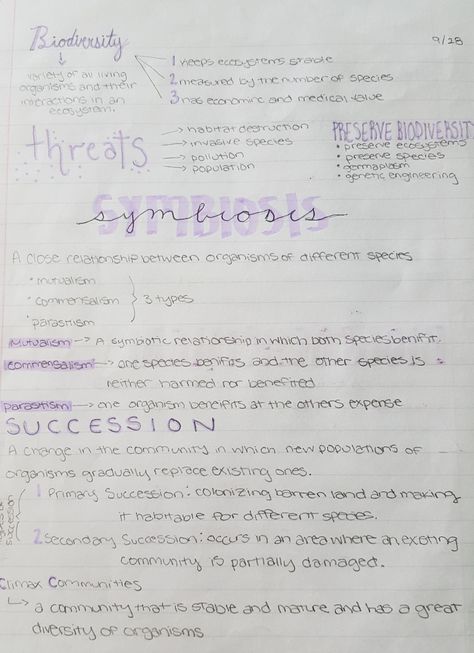 Biodversity
9/28
variety of all living
organisms and their
interactions in an
ecosystem.
1 keeps ecosystems stable
2 measured by the number of species
3 has economic and medical value
threats
habitat destruction
invasive species
pollution
population
PRESERVE BIODIVERSIT
• preserve ecosystems
• preserve species
• germaplasm
• genetic engineering
SYMBIOSIS
symbiosis
A close relationship between organisms of different species
• mutualism
• commensalism
• parastism
3 types
Mutualism → A symbiotic relationship in which both species benifit.
commensalism → one species benifits and the other species is
neither harmed nor benefited
parastism → one organism beneifits at the others expense
SUCCESSION
A change in the community in which new populations of
organisms gradually replace existing ones.
succession
1 Primary Succession: colonizing barren land and making
it habitable for different species.
2 Secondary Succession: occurs in an area where an existing
community is partially damaged.
Climax Communities
↳ a community that is stable and mature and has a great
diversity of organisms